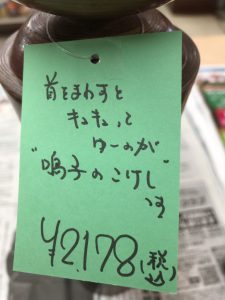 首をまわすと
キュキュって
ゆーのが
"鳴子のこけし"
です
¥2,178(税込)